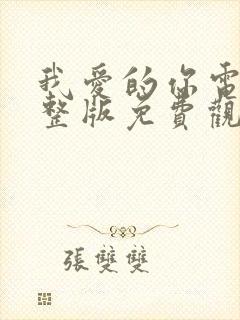 我愛的你電
整版免費觀
張雙雙